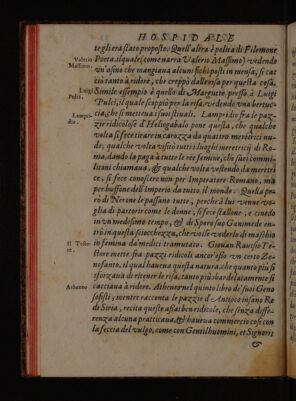 HOSPIDALE
tegli era stato proposto. Quest'altra è poi via di Filemone
Valerio Massimo.
Poeta, il quale (come narra Valerio Massimo) vedendo
un'asino che mangiava alcuni fichi posti in mensa, si cac
ciò tanto à ridere, che creppò dalle risa per questa cosa.
Luigi Pulci.
Simile essempio è quello di Margutte presso à Luigi
Pulci, il qual scoppiò per la risa, vedendo una bertuc-
Lampridio.
cia, che si metteva i suoi stivali. Lampridio fra le paz-
zie ridicolose d'Heliogabalo pone questa, che qualche
volta si fece tirare in carozza da quattro meretrici nu-
de, qualche volta visitò tutti i luoghi meretricij di Ro-
ma, dando la paga à tutte le ree femine, che suoi commi-
litoni chiamava, & qualche volta vestendo da meretri
ce, si fece conoscere non per Imperatore Romano, mà
per buffone dell'Imperio da tutto il mondo. Questa pe-
rò di Nerone le passano tutte, perche à lui venne vo-
glia di partorir come le donne, si fece stallone, e cinedo
in un medesimo tempo, & di Sporo suo Ganimede en-
trò in questa sciocchezza, che volse vederlo di maschio
Il Testore.
in femina da medici tramutato. Giovan Ravisio Te-
store mette fra pazzi ridicoli ancor'esso un certo Ze-
nofanto, il qual haveva questa natura, che quanto più si
sforzava di ritener le risa, tanto più sbardelatamente si
Atheneo
cacciava à ridere. Atheneo nel quinto libro de' suoi Geno
sofisti, mentre racconta le pazzie d'Antioco insano Re
di Siria, recita queste assai ben ridicole, che senza diffe-
renza alcuna pratticava, & haveva commercio così con
la feccia del vulgo, come con Gentilhuomini, et Signori;
&